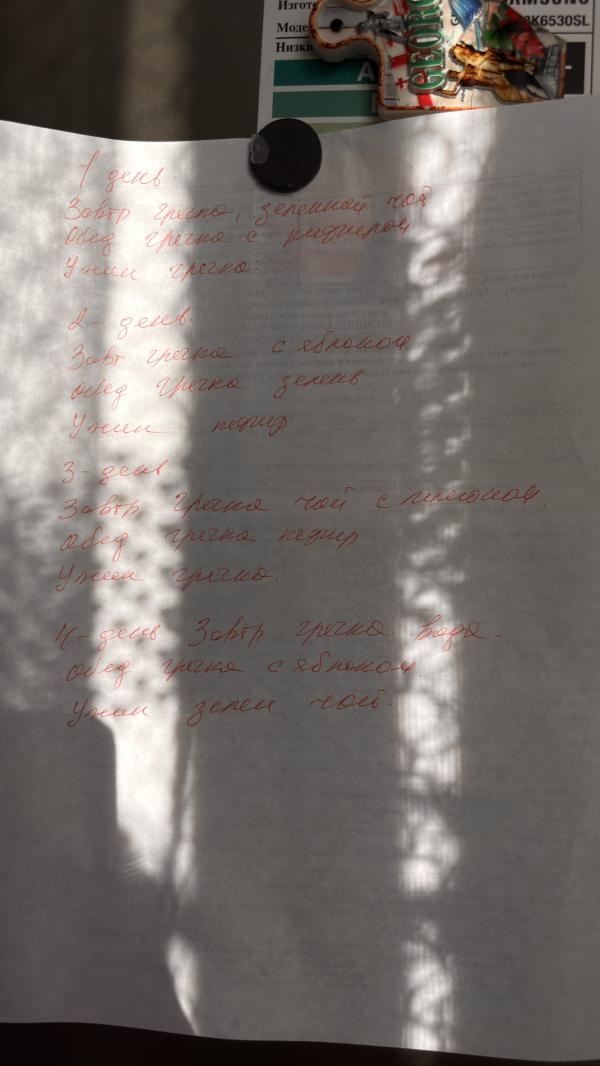 Изгото
SAMSUNG
Моде
BK6530SL
Низки
A
GEORG
1 день.
Завтр гречка, зеленный чай
Обед гречка с кифиром
Ужин гречка:
2- день.
Завт гречка с яблоком
обед гречка зелень.
Ужин кефир
3- день.
Завтр гречка чай с лимоном.
обед гречка кефир
Ужин гречка.
4- день Завтр гречка. вода.
обед гречка с яблоком.
Ужин зелен чай.